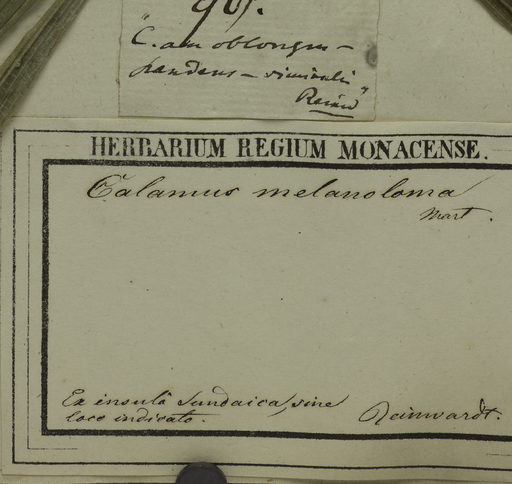 "C. an oblongus –
pandens – viminali"
Reinw
HERBARIUM REGIUM MONACENSE.
Calamus melanoloma
Mart.
Ex insulâ Sundaica, sine
loco indicato.
Reinwardt.